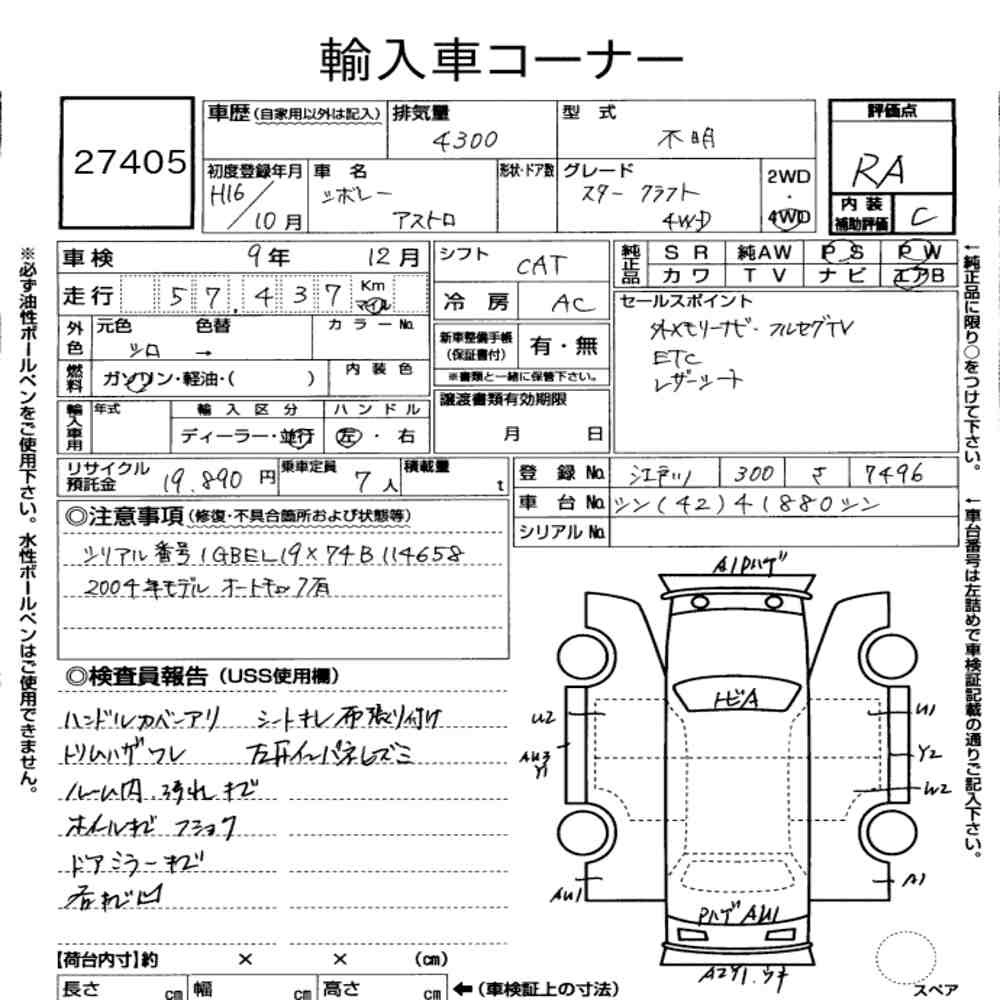 輸入車コーナー
27405
車歴(自家用以外は記入) 排気量 4300 型式 不明 評価点 RA
初度登録年月 H16/10月 車名 シボレー アストロ 形状・ドア数 グレード スタークラフト 4WD 2WD・4WD 内装補助評価 C
車検 9年 12月 シフト CAT 純正品 SR 純AW PS PW
カワ TV ナビ エアB
走行 57,437 Km マイル 冷房 AC
外色 元色 シロ 色替 → カラーNo. 新車整備手帳(保証書付) 有・無
※書類と一緒に保管下さい。
燃料 ガソリン・軽油・( ) 内装色
輸入車用 年式 輸入区分 ディーラー・並行 ハンドル 左・右
譲渡書類有効期限 月 日
セールスポイント
外メモリーナビ・フルセグTV
ETC
レザーシート
リサイクル預託金 19,890円 乗車定員 7人 積載量 t
登録No. 300 さ 7496
車台No. シン(42)41880シン
シリアルNo.
◎注意事項(修復・不具合箇所および状態等)
シリアル番号1GBEL19X74B114658
2004年モデル オートチェック有
◎検査員報告(USS使用欄)
ハンドルカバーアリ シートキレ布張り付け
トリムハガワレ
ルーム内汚れキズ
ホイールキズ フショク
ドアミラーキズ
各キズ凹
【荷台内寸】約 × × (cm)
長さ cm 幅 cm 高さ cm ←(車検証上の寸法)
A1Pハゲ
トビA
U2
AU3
Y1
AU1
U1
Y2
W2
A1
Pハゲ AU1
スペア
※必ず油性ボールペンをご使用下さい。水性ボールペンはご使用できません。
←純正品に限り○をつけて下さい。
←車台番号は左詰めで車検証記載の通りご記入下さい。